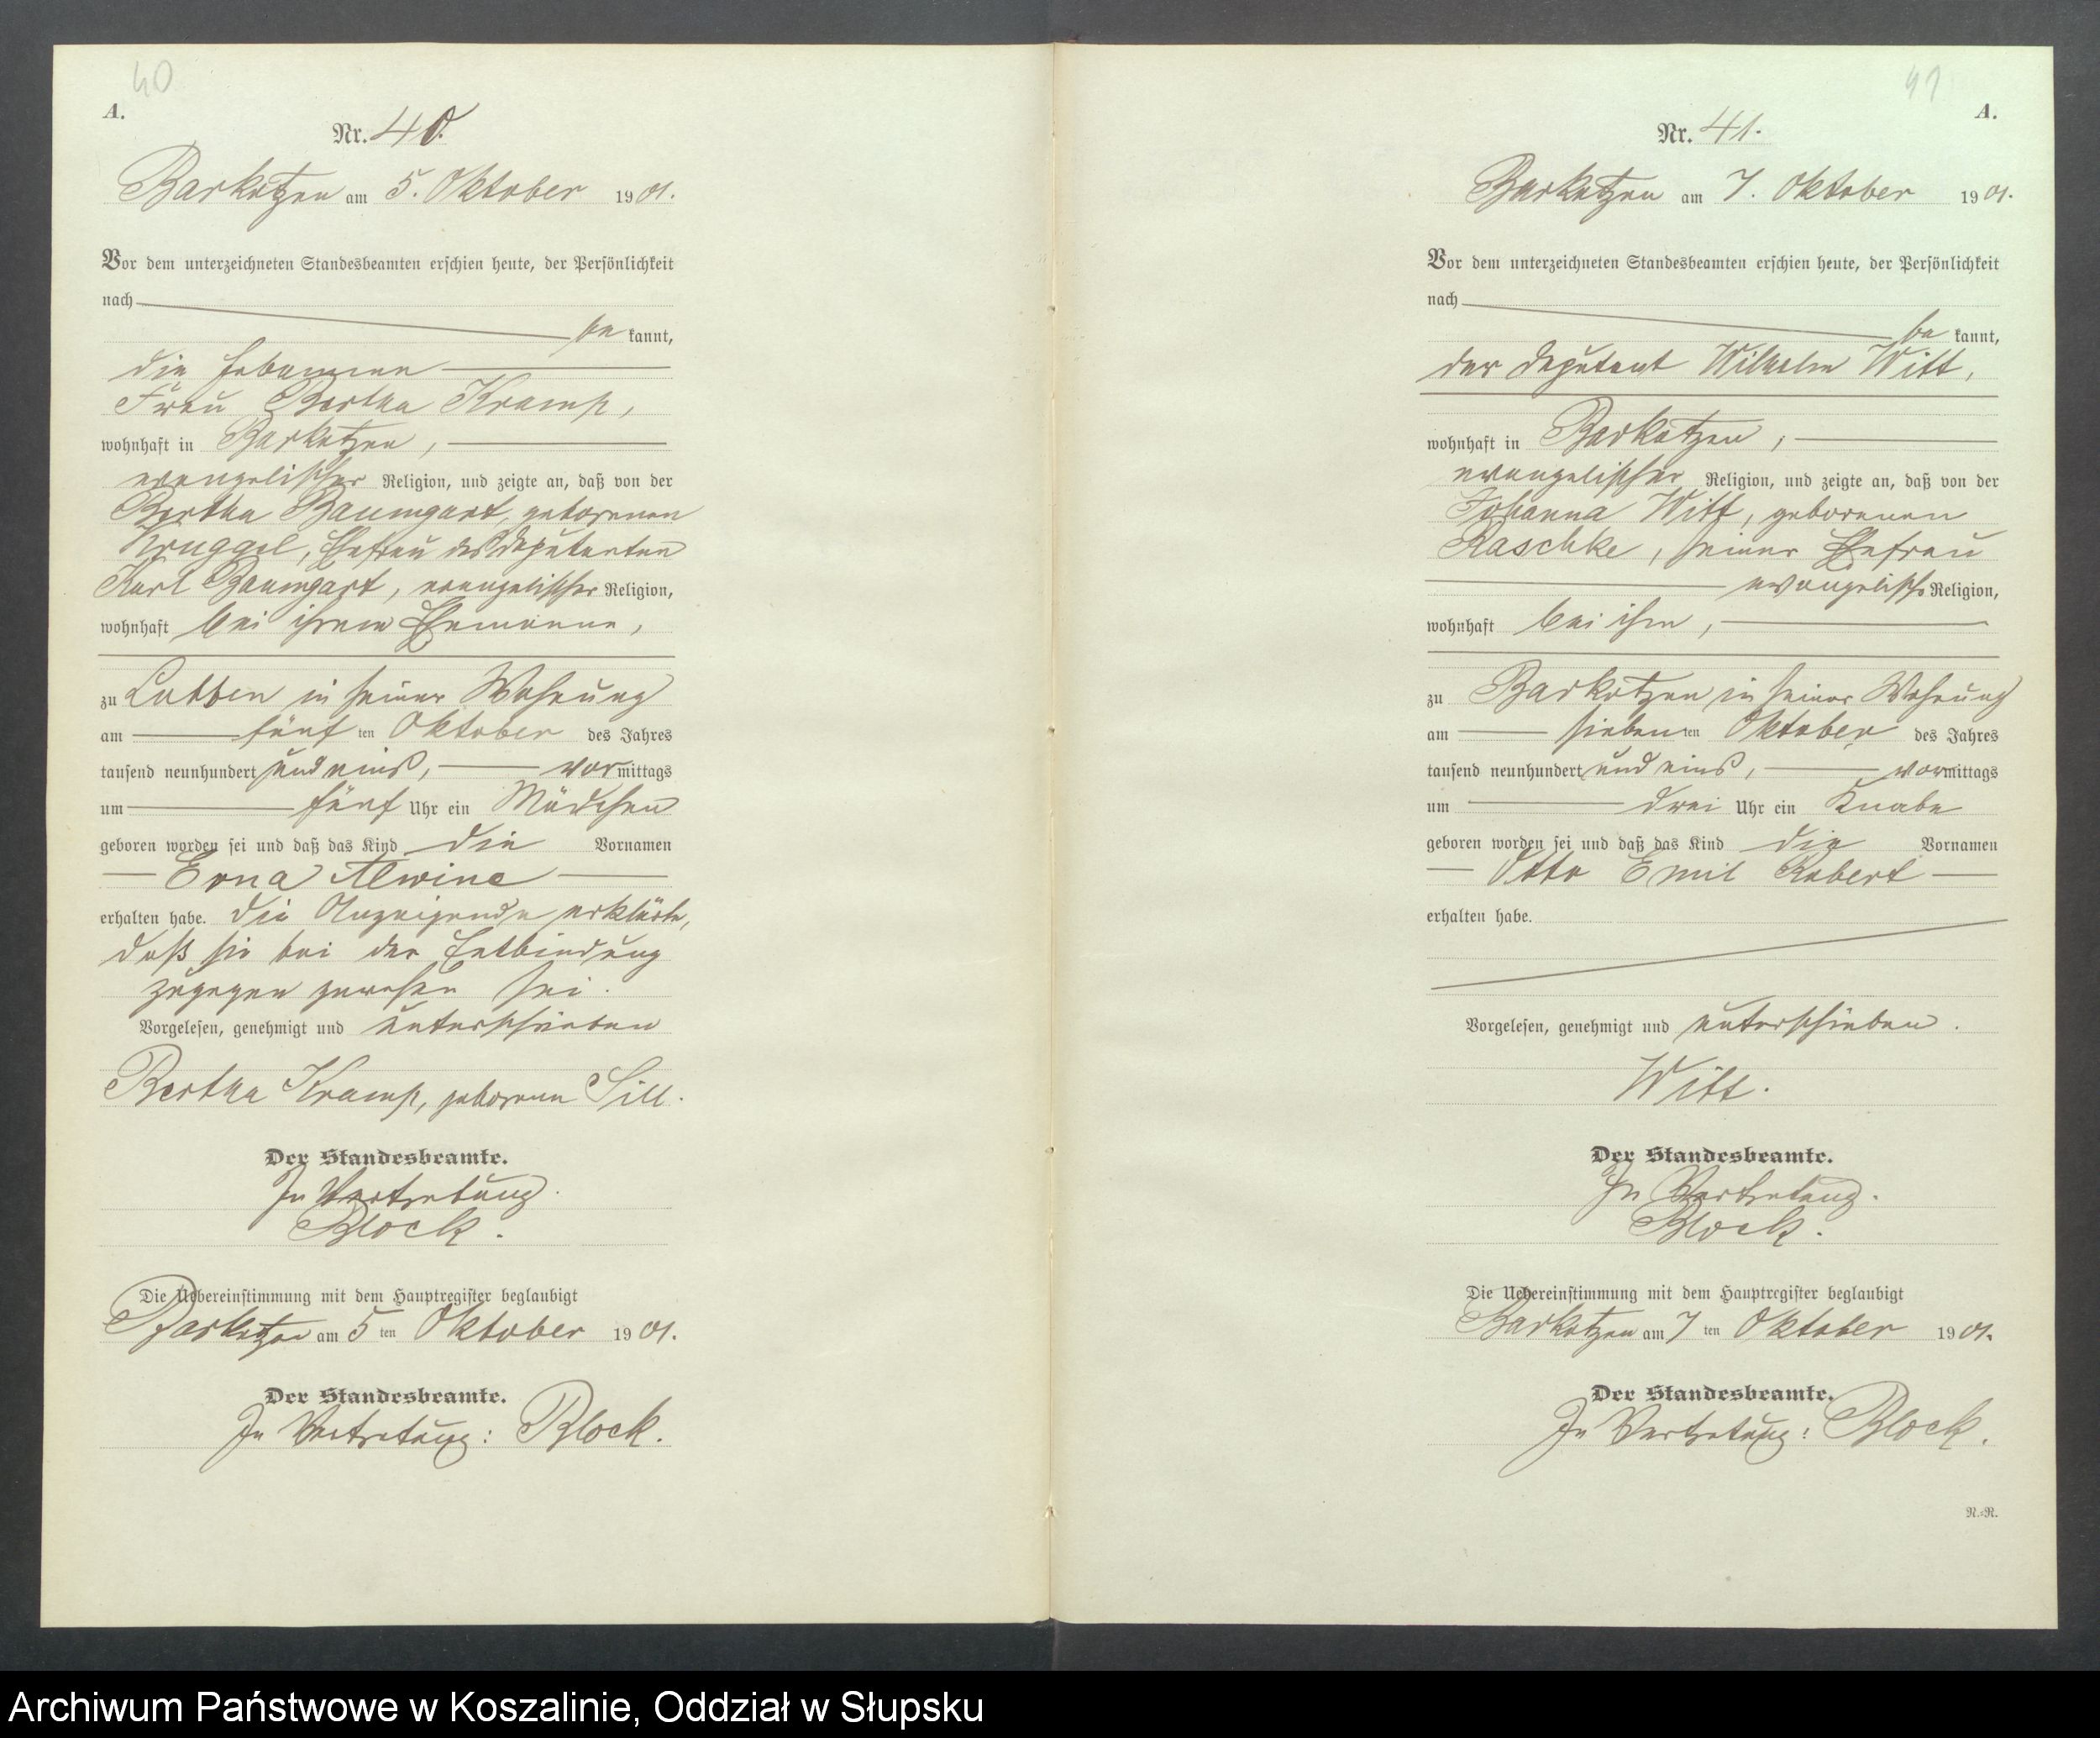 40
A.
Nr. 40.
Barkotzen am 5. Oktober 1901.
Vor dem unterzeichneten Standesbeamten erschien heute, der Persönlichkeit
nach
be kannt,
die Hebamme
Frau Bertha Kramp,
wohnhaft in Barkotzen,
evangelischer Religion, und zeigte an, daß von der
Bertha Baumgart, geborenen
Kruggel, Ehefrau des Deputanten
Karl Baumgart, evangelischer Religion,
wohnhaft bei ihrem Ehemanne,
zu Lubben in seiner Wohnung
am fünf ten Oktober des Jahres
tausend neunhundert und eins, vormittags
um fünf Uhr ein Mädchen
geboren worden sei und daß das Kind die Vornamen
Erna Alwine
erhalten habe. Die Anzeigende erklärte,
daß sie bei der Entbindung
zugegen gewesen sei.
Vorgelesen, genehmigt und unterschrieben
Bertha Kramp, geborene Sill.
Der Standesbeamte.
In Vertretung.
Block.
Die Uebereinstimmung mit dem Hauptregister beglaubigt
Barkotzen am 5 ten Oktober 1901.
Der Standesbeamte.
In Vertretung: Block.
41
A.
Nr. 41.
Barkotzen am 7. Oktober 1901.
Vor dem unterzeichneten Standesbeamten erschien heute, der Persönlichkeit
nach
be kannt,
der Deputant Wilhelm Witt,
wohnhaft in Barkotzen,
evangelischer Religion, und zeigte an, daß von der
Johanna Witt, geborenen
Raschke, seiner Ehefrau
evangelischr Religion,
wohnhaft bei ihm,
zu Barkotzen in seiner Wohnung
am sieben ten Oktober des Jahres
tausend neunhundert und eins, vormittags
um drei Uhr ein Knabe
geboren worden sei und daß das Kind die Vornamen
Otto Emil Robert
erhalten habe.
Vorgelesen, genehmigt und unterschrieben.
Witt.
Der Standesbeamte.
In Vertretung.
Block.
Die Uebereinstimmung mit dem Hauptregister beglaubigt
Barkotzen am 7 ten Oktober 1901.
Der Standesbeamte.
In Vertretung: Block.
N.=R.
Archiwum Państwowe w Koszalinie, Oddział w Słupsku